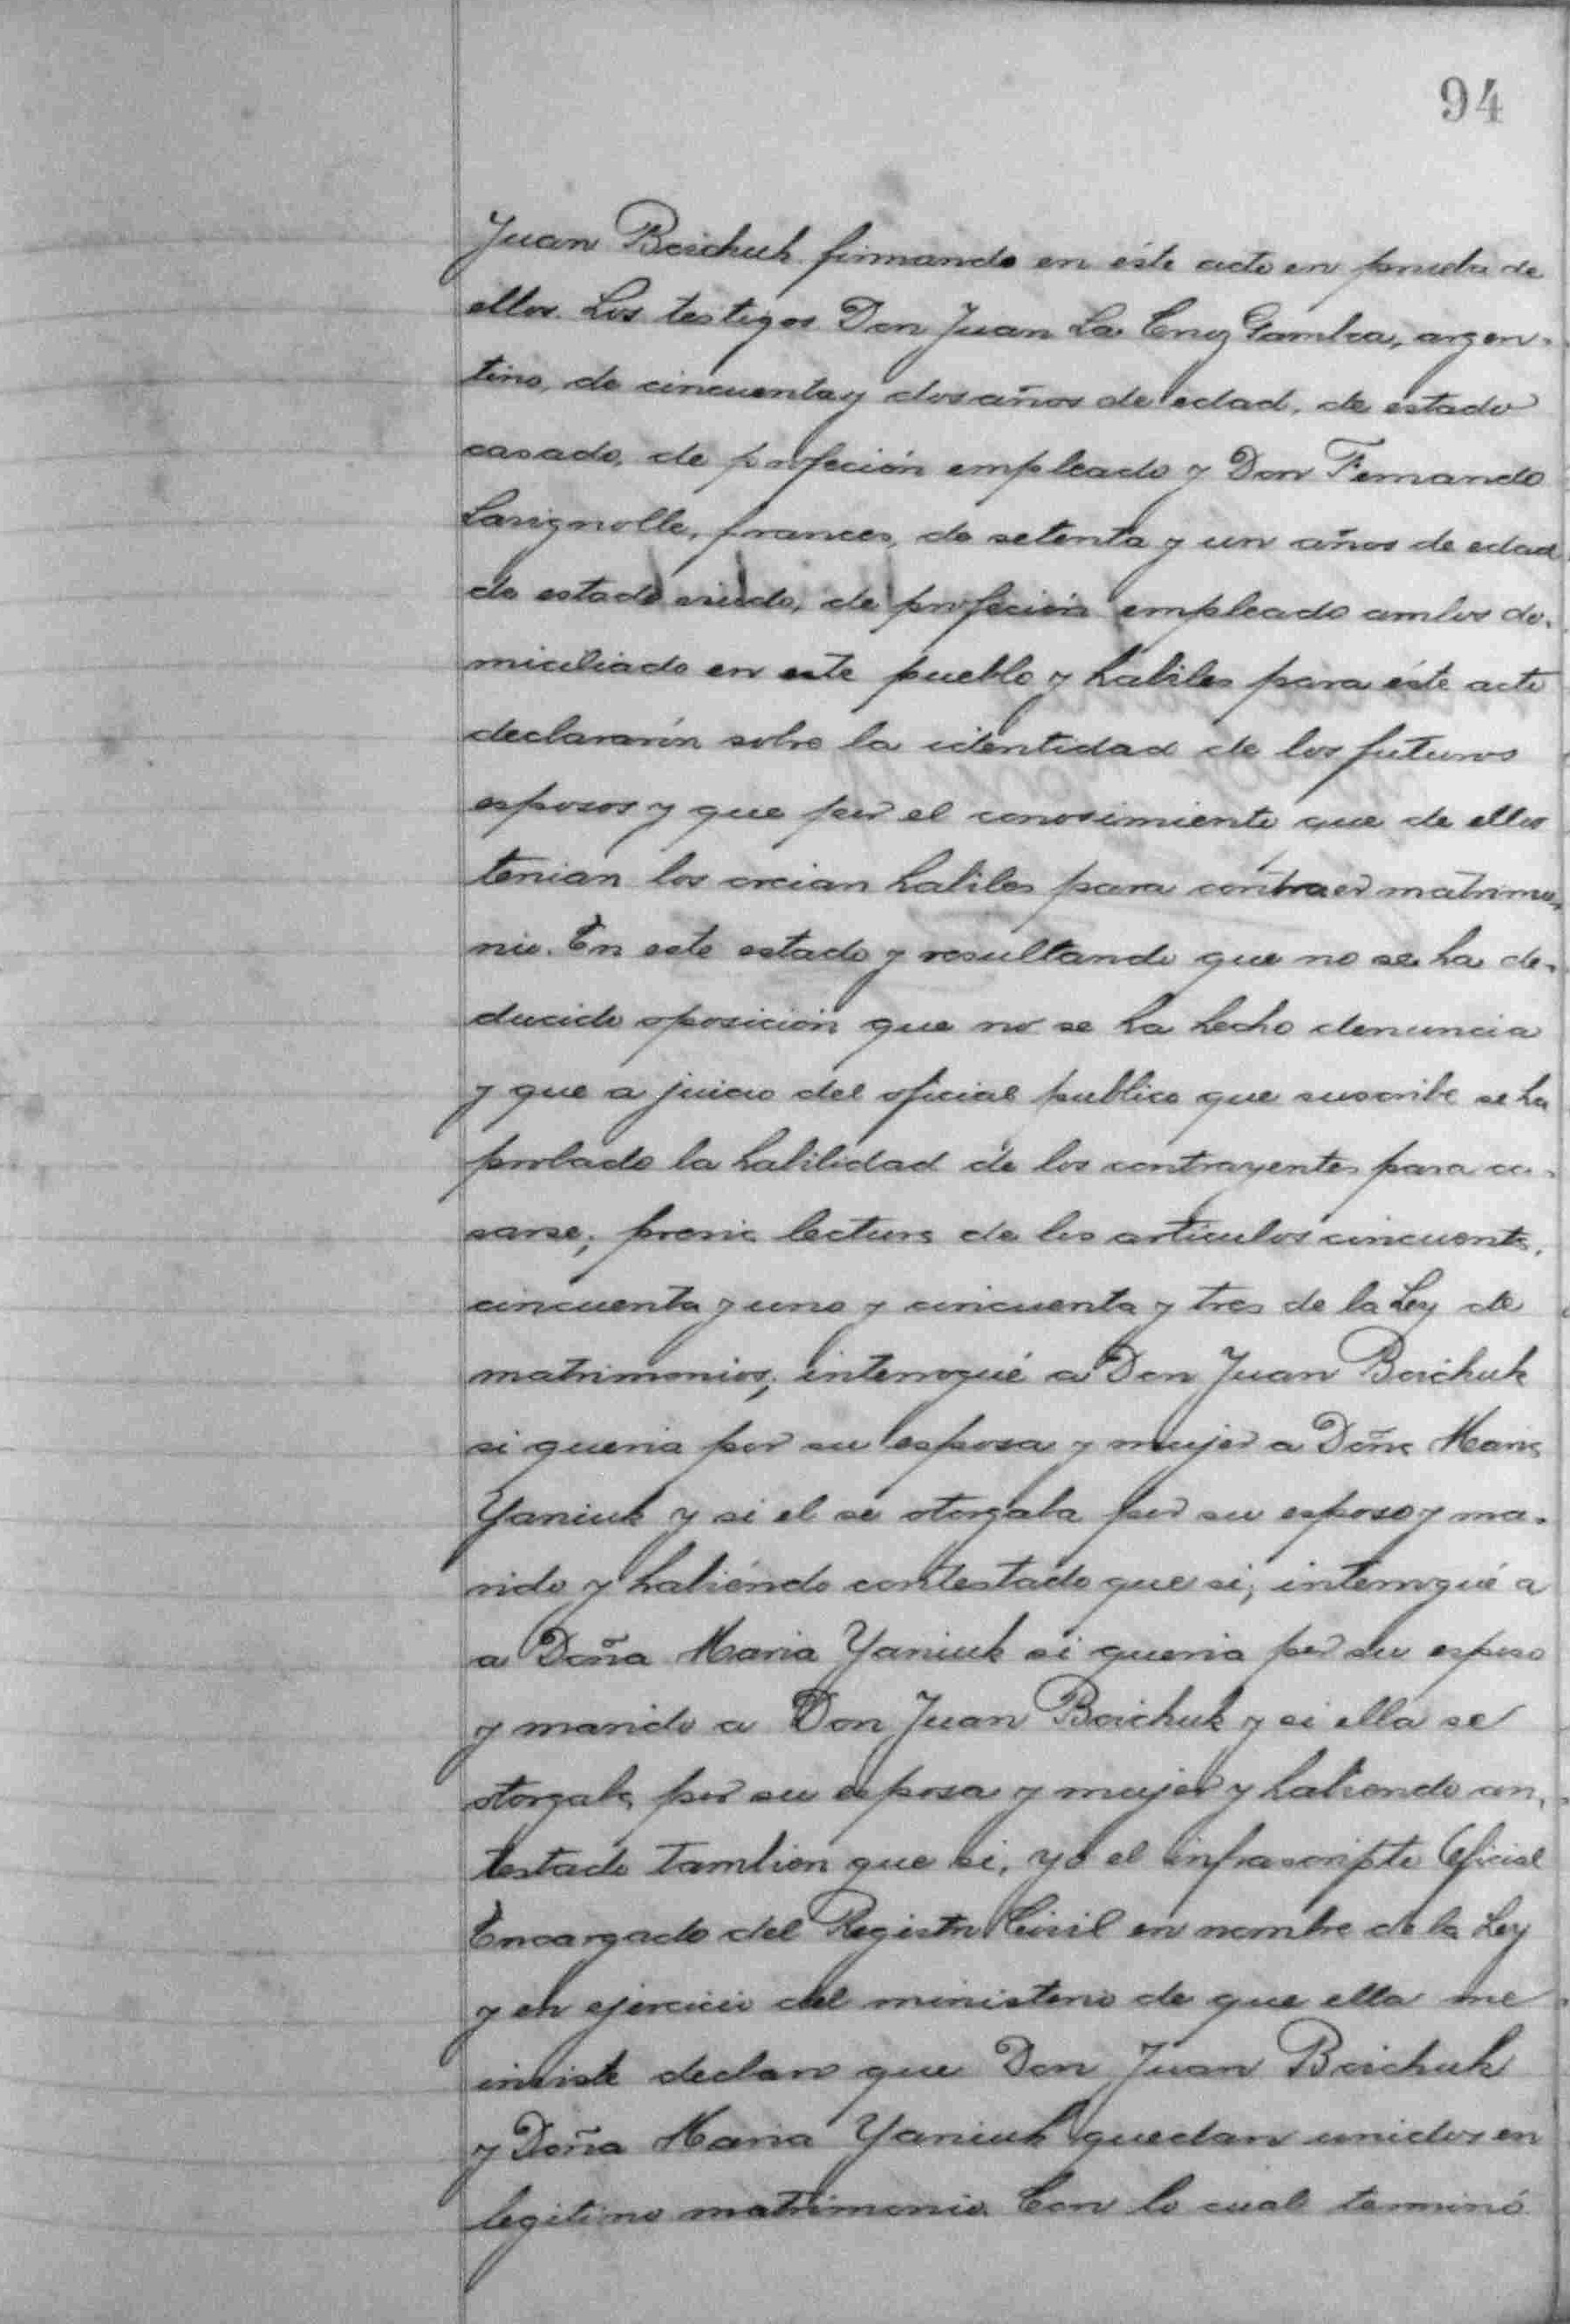 94
Juan Boichuk firmando en éste acto en prueba de
ellos. Los testigos Don Juan La Cruz Gamboa, argen-
tino, de cincuenta y dos años de edad, de estado
casado, de profeción empleado y Don Fernando
Lavignolle, frances, de setenta y un años de edad
de estado viudo, de profeción empleado ambos do-
miciliado en este pueblo y habiles para éste acto
declararón sobre la identidad de los futuros
esposos y que por el conosimiento que de ellos
tenian los creian habiles para contraer matrimo-
nio. En este estado y resultando que no se ha de-
ducido oposición que no se ha hecho denuncia
y que a juicio del oficial publico que suscribe se ha
probado la habilidad de los contrayentes para ca-
sarse; previa lectura de los articulos cincuenta,
cincuenta y uno y cincuenta y tres de la Ley de
matrimonios; interrogué a Don Juan Boichuk
si queria por su esposa y mujer a Doña Maria
Yaniuk y si el se otorgaba por su esposo y ma-
rido y habiéndo contestado que si; interrogué a
a Doña Maria Yaniuk si queria por su esposo
y marido a Don Juan Boichuk y si ella se
otorgaba por su esposa y mujer y habiendo con-
testado tambien que si, yo el infrascripto Oficial
Encargado del Registro Civil en nombre de la Ley
y en ejercicio del ministerio de que ella me
inviste declaro que Don Juan Boichuk
y Doña Maria Yaniuk quedan unidos en
legitimo matrimonio. Con lo cual terminó